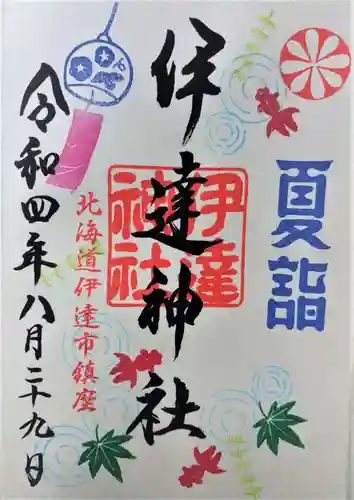 夏詣
伊達神社
伊達
神社
北海道伊達市鎮座
令和四年八月二十九日